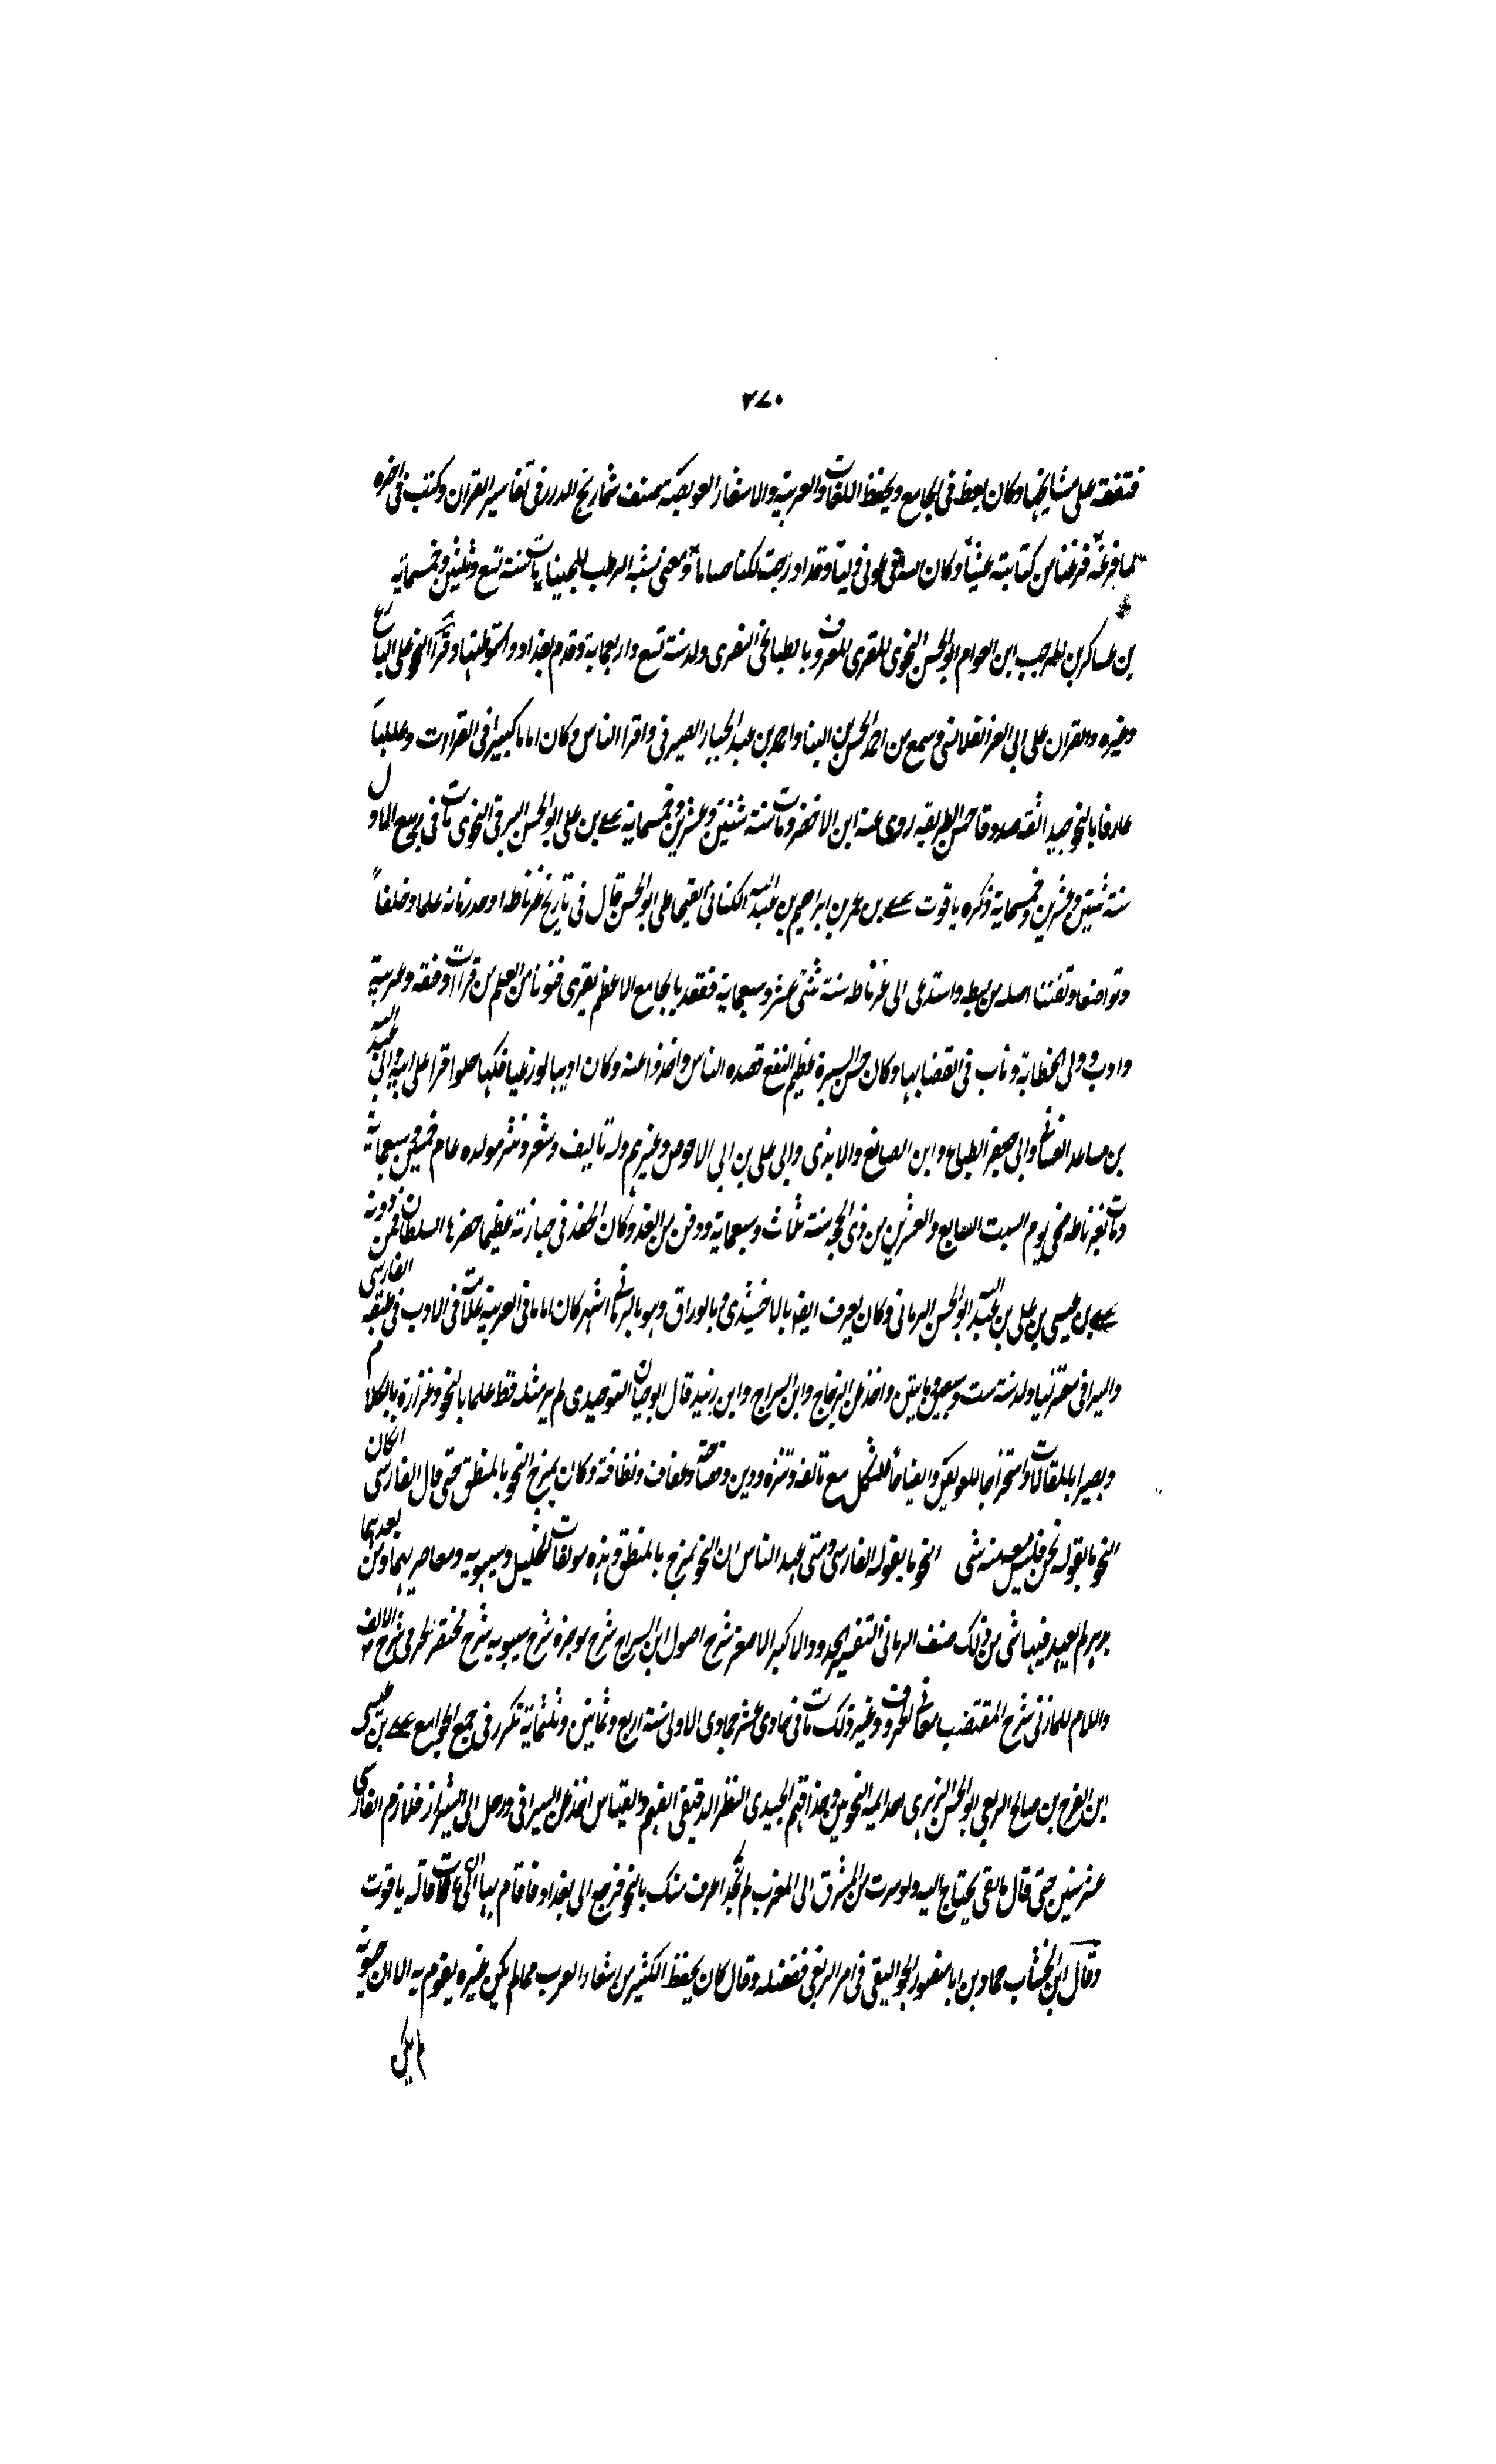 ٢٧٠
فتفقه على مشايخها وكان يعظ فى الجامع ويحفظ اللغات والعربية والاشعار العويصة صنف شماريخ الدرر فى تفاسير القران وكتب فى اخره
لما فرغنه فرغنا من كتابته عشيا وكان الله فى عونى وليا وقد ادرجت لكنا صاما ومعنى نسبه الرطب للجنيا مات سنة تسع وثلثين وخمسماية
بن عساكر بن المرحب ابن العوام ابو الحسن النحوى المقرى المعروف بالبطايحى الضرى ولد سنة تسع واربعماية وقدم بغداد واستوطنها وقرأ النحو على البارع
وغيره والقران على ابى العز القلانسى وسمع من احمد الحسن بن البنا واحمد بن عبد الجبار الصيرفى واقرا الناس وكان اماما كبيرا فى القراات وعللها
عارفا بالنحو جيدا ثقه صدوقا حسن الطريقه روى عنه ابن الاخضر ومات سنة ثنتين وعشرين وخمسماية على بن على ابو الحسن البرقى النحوى مات فى ربيع الاول
سنة ثنتين وعشرين وخمسماية ذكره ياقوت على بن عمر بن ابراهيم بن عبد الله الكنانى القيجاطى ابو الحسن قال فى تاريخ غرناطه اوحد زمانه علما وخلقاً
وتواضعا وتفننا اصله من بسطه واستدعى الى غرناطه سنة ثنتى عشر وسبعماية فقعد بالجامع الاعظم يقرى فنونا من العلم من قراات وفقه وعربية
وادب وولى الخطابة وناب فى القضا بها وكان حسن السيرة عظيم النفع قصده الناس واخذوا عنه وكان اديبا لوذعيا فكها حلوا قرا على ابيه وابى عبد الله
بن مساعد الغسانى وابى جعفر الطباع وابن الصائغ والابذى وابى على بن ابى الاحوص وغيرهم وله تاليف وشعر ونثر مولده عام خمسين وستماية
ومات بغرناطه ضحى يوم السبت السابع والعشرين من ذى الحجه سنة ثلاث وسبعماية ودفن من الغد وكان الحفد فى جنازته عظيما حضرها السلطان فمن دونه
على بن عيسى بن على بن عبد الله ابو الحسن الرمانى وكان يعرف ايضا بالاخشيدى وبالوراق وهو بالرمانى اشهر كان اماما فى العربية علامة فى الادب فى طبقه الفارسى
والسيرافى معتزليا ولد سنة ست وسبعين ومايتين واخذ عن الزجاج وابن السراج وابن دريد قال ابو حيان التوحيدى لم ير مثله قط علما بالنحو وغزارة بالكلام
وبصيرا بالمقالات واستخراجا للعويص وايضاحاً للمشكل مع تاله وتنزه ودين وفصاحة وعفاف ونظافة وكان يمزج النحو بالمنطق حتى قال الفارسى ان كان
النحو ما يقوله نحن فليس معه منه شى النحو ما يقوله الفارسى ومتى عهد الناس ان النحو يمزج بالمنطق وهذه مولفات الخليل وسيبويه ومعاصريهما ومن بعدهما
بدهر لم يعهد فيها شى من ذلك صنف الرمانى التفسير الحدود الاكبر الاصغر شرح اصول ابن السراج شرح موجزه شرح سيبويه شرح مختصر الجرمى شرح الالف
واللام للمازنى شرح المقتضب معانى الحروف وغير ذلك مات فى حادى عشر جمادى الاولى سنة اربع وثمانين وثلثماية تكرر فى جمع الجوامع على بن عيسى
ابن الفرج بن صالح الربعى ابو الحسن الزهرى احد ايمة النحويين وحذاقهم الجيدى النظر الدقيقى الفهم والقياس اخذ عن السيرافى ورحل الى شيراز فلازم الفارسى
عشر سنين حتى قال ما بقى يحتاج اليه ولو سرت من المشرق الى المغرب لم تجد اعرف منك بالنحو فرجع الى بغداد فاقام بها الى ان مات قاله ياقوت
وقال ابن الخشاب حماد بن ابا منصور الجواليقى فى امر الربعى ففضله وقال كان يحفظ الكثير من اشعار العرب مما لم يكن غيره يقوم به الا ان حنوته
لم يكن